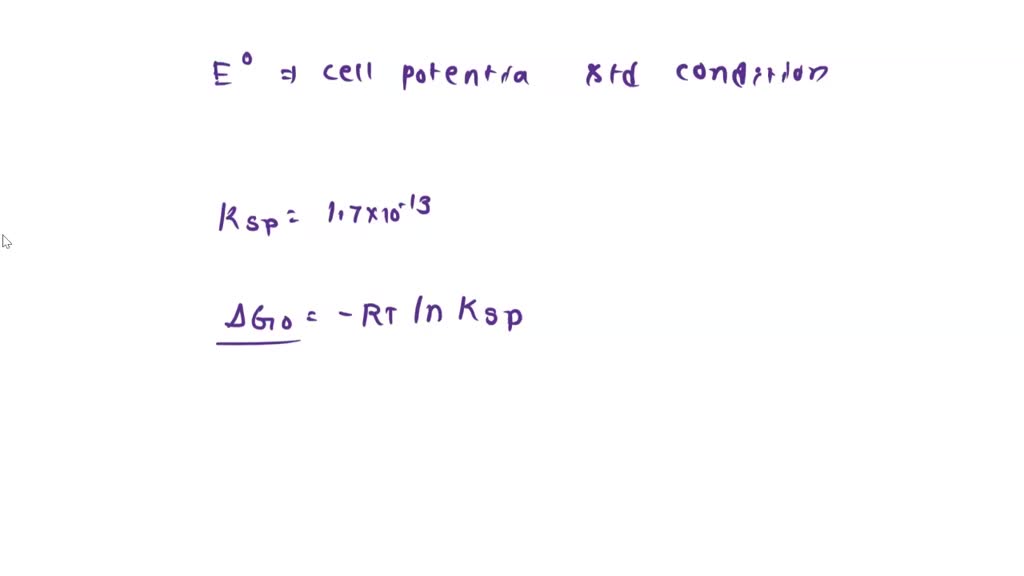 E° ⇒ cell potentia std condition
Ksp = 1.7×10⁻¹³
ΔG₀ = -RT ln Ksp